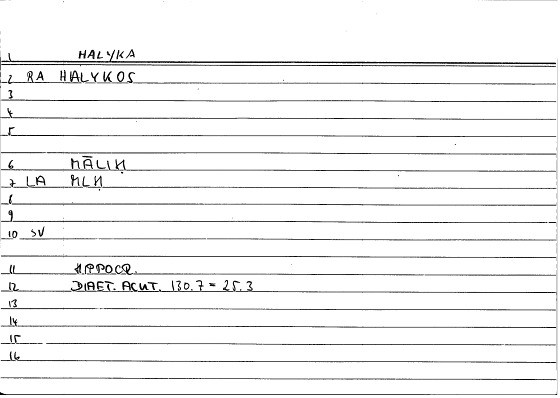 1 HALYKA
2 RA HALYKOS
3
4
5
6 MĀLIḤ
7 LA MLḤ
8
9
10 SV
11 HIPPOCR.
12 DIAET. ACUT. 130.7 = 25.3
13
14
15
16